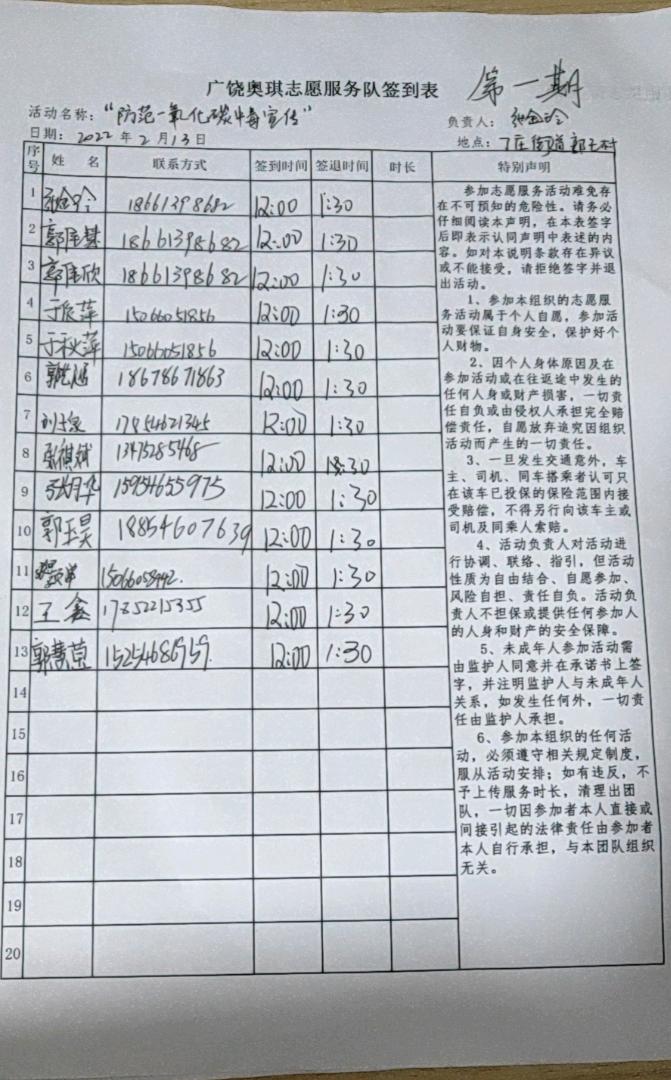 广饶奥琪志愿服务队签到表
第一期
活动名称：“防范一氧化碳中毒宣传”
负责人：
日期：2022年2月13日
地点：丁庄街道郭王村
序号 姓 名 联系方式 签到时间 签退时间 时长 特别声明
1 18661398682 12:00 1:30
2 18661398682 12:00 1:30
3 18661398682 12:00 1:30
4 15066051856 12:00 1:30
5 于秋萍 15066051856 12:00 1:30
6 18678671863 12:00 1:30
7 17854621345 12:00 1:30
8 13475285468 12:00 1:30
9 张月华 15954655975 12:00 1:30
10 郭玉昊 18854607639 12:00 1:30
11 12:00 1:30
12 王鑫 17852215355 12:00 1:30
13 郭慧茹 15254686959 12:00 1:30
14
15
16
17
18
19
20
参加志愿服务活动难免存
在不可预知的危险性。请务必
仔细阅读本声明，在本表签字
后即表示认同声明中表述的内
容。如对本说明条款存在异议
或不能接受，请拒绝签字并退
出活动。
1、参加本组织的志愿服
务活动属于个人自愿，参加活
动要保证自身安全，保护好个
人财物。
2、因个人身体原因及在
参加活动或在往返途中发生的
任何人身或财产损害，一切责
任自负或由侵权人承担完全赔
偿责任，自愿放弃追究因组织
活动而产生的一切责任。
3、一旦发生交通意外，车
主、司机、同车搭乘者认可只
在该车已投保的保险范围内接
受赔偿，不得另行向该车主或
司机及同乘人索赔。
4、活动负责人对活动进
行协调、联络、指引，但活动
性质为自由结合、自愿参加、
风险自担、责任自负。活动负
责人不担保或提供任何参加人
的人身和财产的安全保障。
5、未成年人参加活动需
由监护人同意并在承诺书上签
字，并注明监护人与未成年人
关系，如发生任何外，一切责
任由监护人承担。
6、参加本组织的任何活
动，必须遵守相关规定制度，
服从活动安排；如有违反，不
予上传服务时长，清理出团
队，一切因参加者本人直接或
间接引起的法律责任由参加者
本人自行承担，与本团队组织
无关。